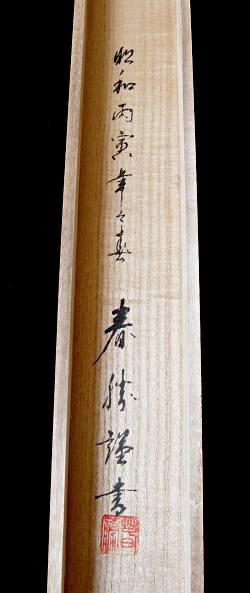 昭和丙寅年之春 春勝謹書